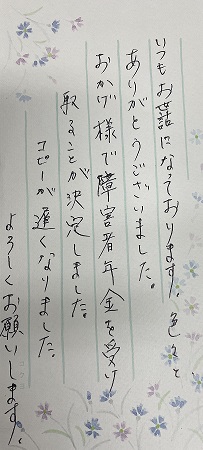 いつもお世話になっております。色々と
ありがとうございました。
おかげ様で障害者年金を受け
取ることが決定しました。
コピーが遅くなりました。
よろしくお願いします。